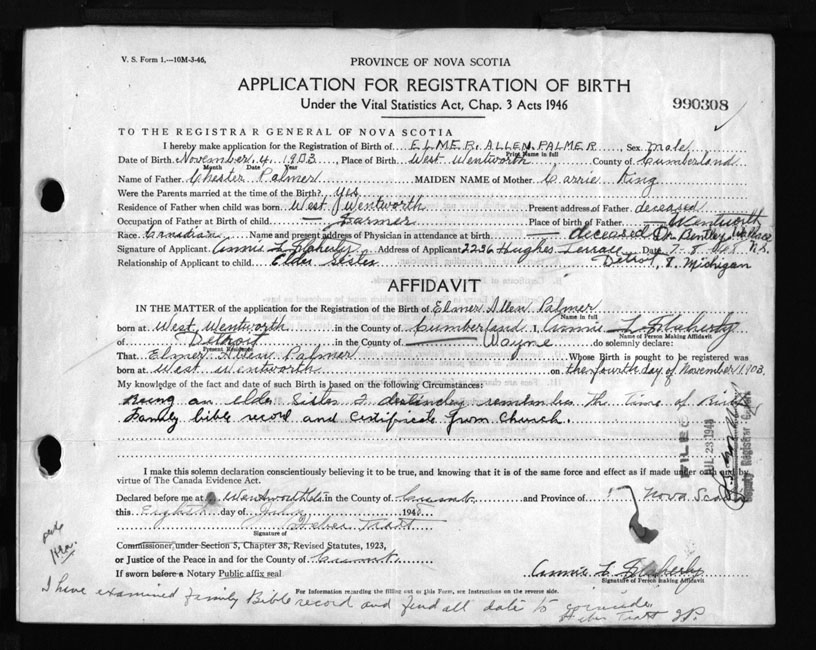 V. S. Form 1.—10M-3-46,
PROVINCE OF NOVA SCOTIA
APPLICATION FOR REGISTRATION OF BIRTH
Under the Vital Statistics Act, Chap. 3 Acts 1946
990308
TO THE REGISTRAR GENERAL OF NOVA SCOTIA
I hereby make application for the Registration of Birth of ELMER. ALLEN. PALMER Sex male
Print Name in full
Date of Birth November 4, 1903 Place of Birth West Wentworth County of Cumberland
Month
Name of Father Chester Palmer MAIDEN NAME of Mother Carrie King
Were the Parents married at the time of the Birth? yes
Residence of Father when child was born West Wentworth Present address of Father deceased
Occupation of Father at Birth of child — Farmer Place of birth of Father Wentworth
Race Canadian Name and present address of Physician in attendance at birth — deceased Dr. Wallace N.S.
Signature of Applicant Annie L. Flaherty Address of Applicant 2236 Hughes Terrace Date 7-8
Relationship of Applicant to child Elder Sister Detroit, 8, Michigan
AFFIDAVIT
IN THE MATTER of the application for the Registration of the Birth of Elmer Allen Palmer
Name in full
born at West Wentworth in the County of Cumberland I, Annie L. Flaherty
Name of Person Making Affidavit
of Detroit in the County of Wayne do solemnly declare:
Present Residence
That Elmer Allen Palmer Whose Birth is sought to be registered was
born at West Wentworth on the fourth day of November 1903.
My knowledge of the fact and date of such Birth is based on the following Circumstances:
Being an elder Sister I distinctly remember the time of Birth
Family bible record and Certificate from Church.
FILED
JUL 23 1948
Deputy Registrar General
I make this solemn declaration conscientiously believing it to be true, and knowing that it is of the same force and effect as if made under oath and by
virtue of The Canada Evidence Act.
Declared before me at Wentworth in the County of Cumb. and Province of Nova Scotia
this Eighth day of July 1948
Heber Tratt
Signature of
Commissioner under Section 5, Chapter 38, Revised Statutes, 1923,
or Justice of the Peace in and for the County of Cumb.
If sworn before a Notary Public affix seal
Annie L. Flaherty
Signature of Person making Affidavit
For Information regarding the filling out of this Form, see Instructions on the reverse side.
I have examined family Bible record and find all date to coincide
Heber Tratt JP.